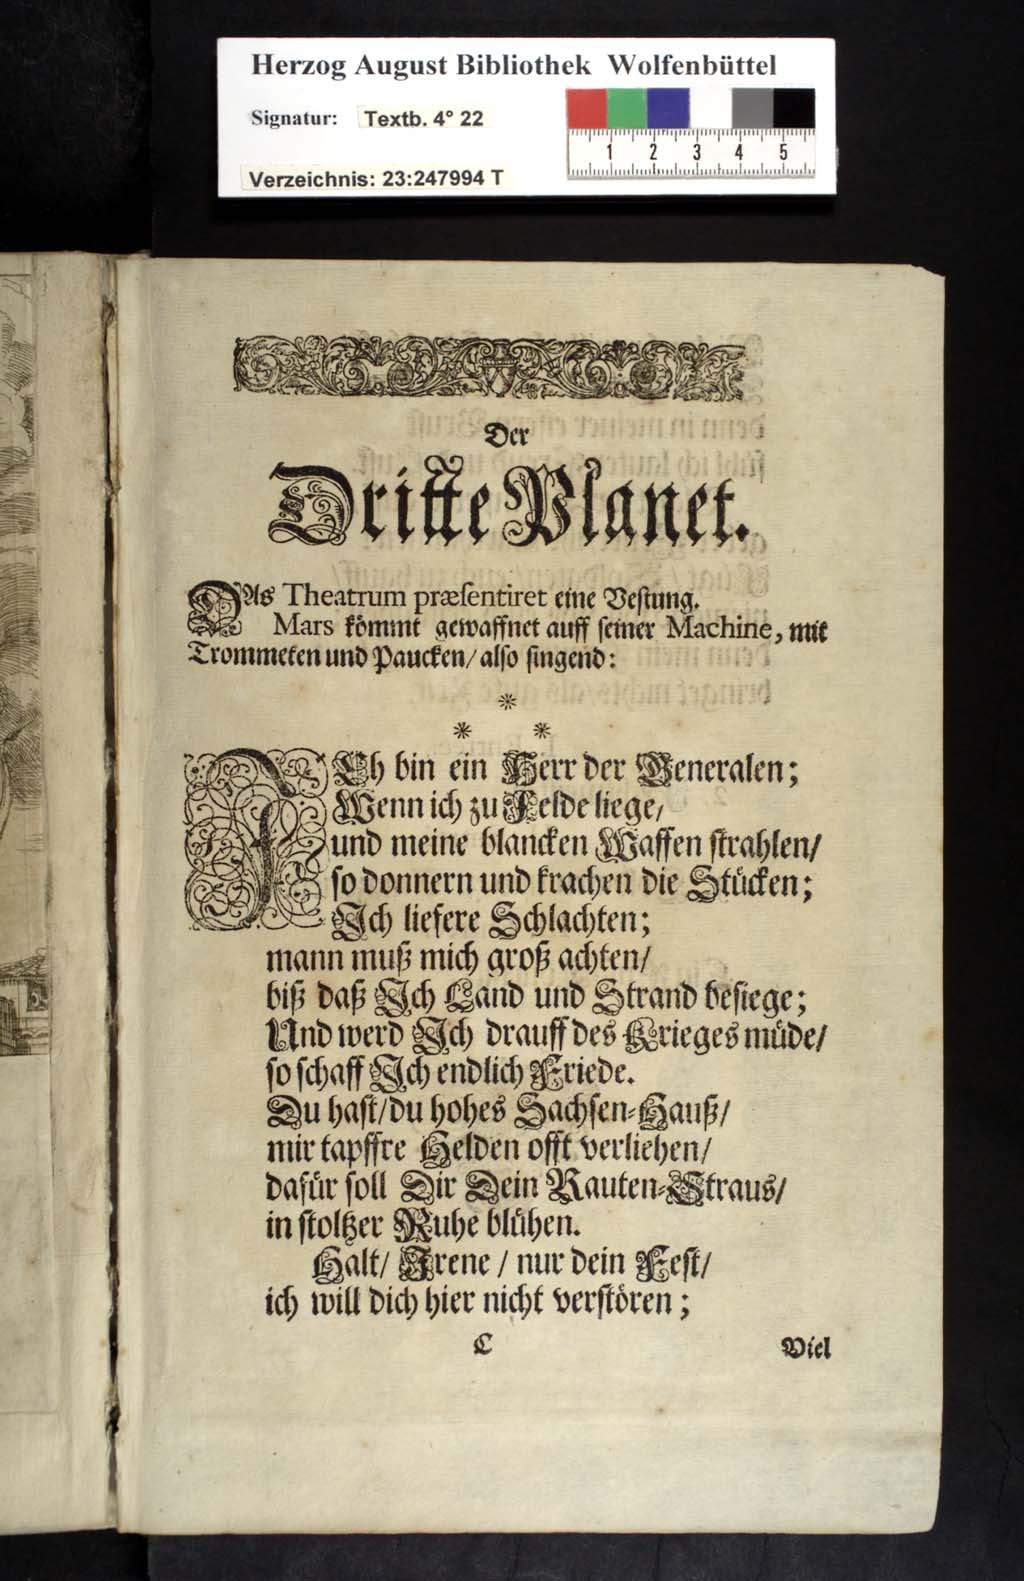 Herzog August Bibliothek Wolfenbüttel
Signatur: Textb. 4° 22
1 2 3 4 5
Verzeichnis: 23:247994 T
Der
Dritte Planet.
DAs Theatrum præsentiret eine Vestung.
Mars kömmt gewaffnet auff seiner Machine, mit
Trommeten und Paucken/ also singend:
* * *
ICh bin ein Herr der Generalen;
Wenn ich zu Felde liege/
und meine blancken Waffen strahlen/
so donnern und krachen die Stücken;
Ich liefere Schlachten;
mann muß mich groß achten/
biß daß Ich Land und Strand besiege;
Und werd Ich drauff des Krieges müde/
so schaff Ich endlich Friede.
Du hast/ du hohes Sachsen-Hauß/
mir tapffre Helden offt verliehen/
dafür soll Dir Dein Rauten-Straus/
in stoltzer Ruhe blühen.
Halt/ Irene / nur dein Fest/
ich will dich hier nicht verstören;
C
Viel